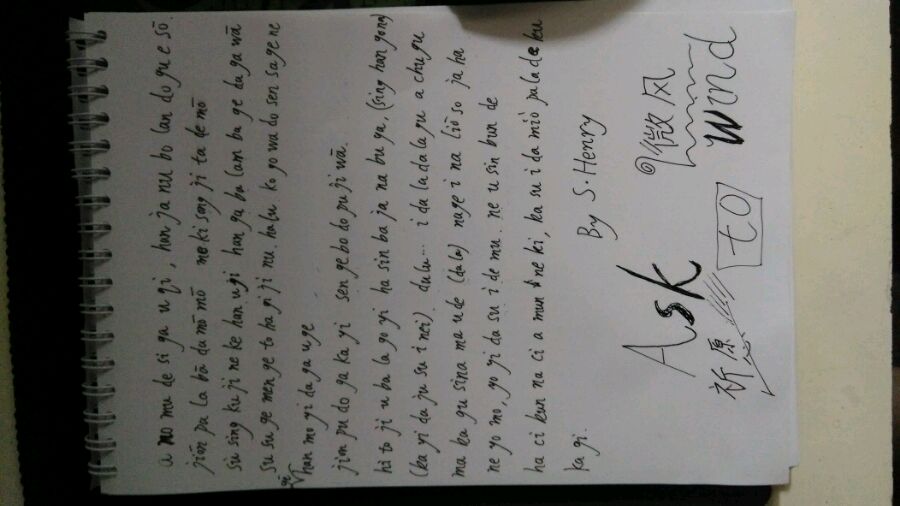 a no mu de si ga u qi , han ja nu bo lan do gu e sō.
jiōn pu la bā du mō mō me ki song ji ta de mō
su sing ku ji ne ke han u ji han ga ba lam ba ge da ga wā
su su ge men ge to ha gi ji nu. ha bu ko go wa do sen sa ge ne
han mo yi da ga u ge
jiōn pu do ga ka yi sen ge bo do pu ji wā.
hi to ji u ba la go yi ha sin ba ja na bu ga, (sing han gong)
(ka yi da ju su i nei) du lu... i da la da la gu a chu gu
ma ka gu si na ma u de (da la) na ge i na liō so ja ha
ne yo mo, yo yi da su i de mu. ne u sin bun de
ha ci kun na ci a mun ne ki, ka su i da miō pa la de ku
ka gi.
By S·Henry
Ask
微风
wind
祈愿
to